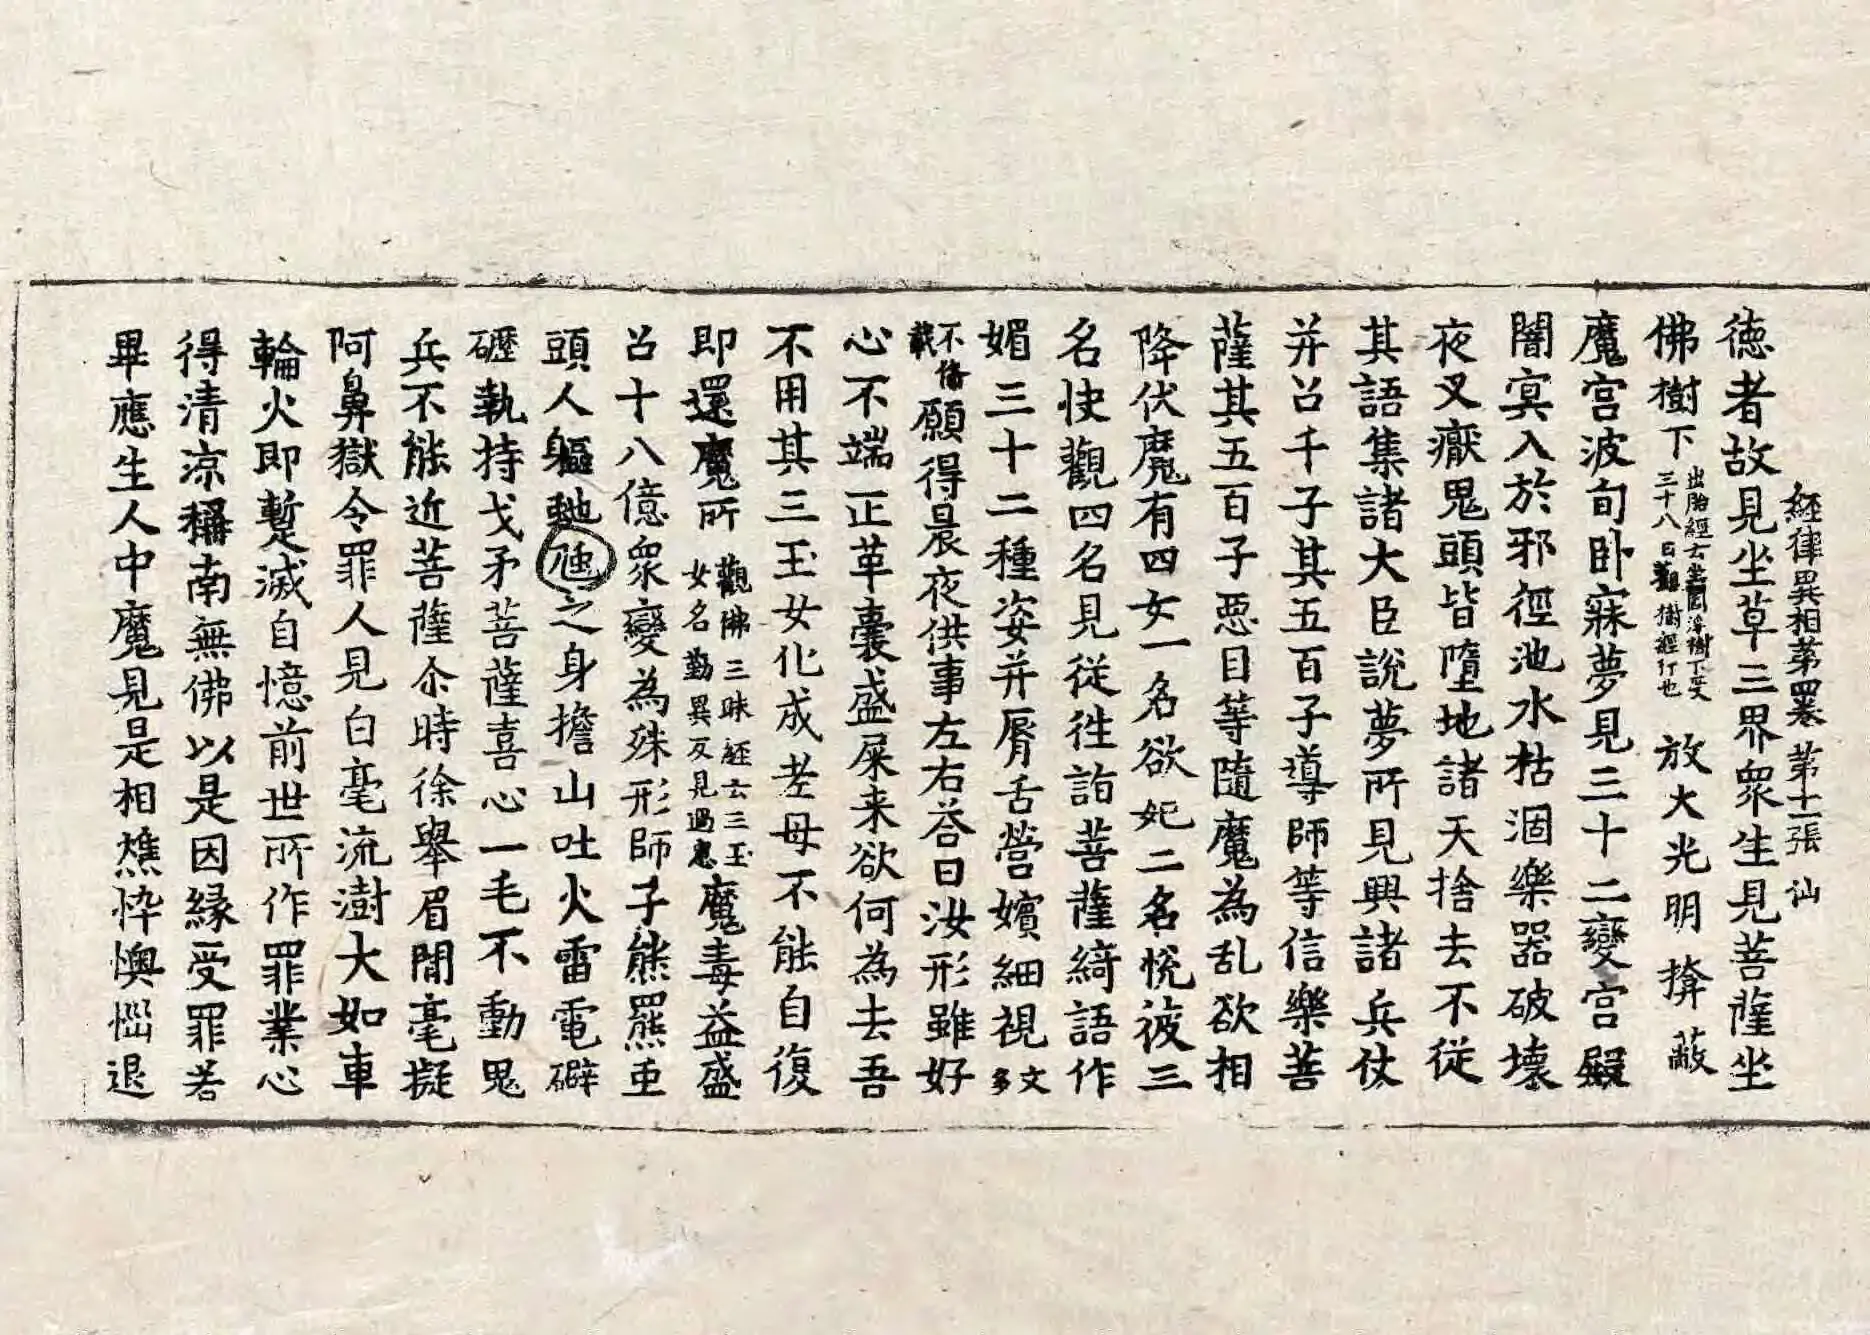 德者故見坐草三界眾生見菩薩坐
經律異相第四卷 第十一張 仙
佛樹下出胎經云坐閻浮樹下
三十八日觀樹經行也放大光明揜蔽
魔宮波旬卧寐夢見三十二變宮殿
闇冥入於邪徑池水枯涸樂器破壞
夜叉癥鬼頭皆墮地諸天捨去不從
其語集諸大臣說夢所見興諸兵仗
并召千子其五百子導師等信樂菩
薩其五百子惡目等隨魔為乱欲相
降伏魔有四女一名欲妃二名悅彼三
名快觀四名見從徃詣菩薩綺語作
媚三十二種姿并脣舌營嬪細視文多
不俻載願得晨夜供事左右荅曰汝形雖好
心不端正革囊盛屎来欲何為去吾
不用其三玉女化成老母不能自復
即還魔所觀佛三昧經云三玉
女名勤異反見過患魔毒益盛
召十八億眾變為殊形師子熊羆䖝
頭人軀虵虺之身擔山吐火雷電礔
礰執持戈矛菩薩喜心一毛不動鬼
兵不能近菩薩尒時徐舉眉閒毫擬
阿鼻獄令罪人見白毫流澍大如車
輪火即蹔滅自憶前世所作罪業心
得清涼稱南無佛以是因緣受罪若
畢應生人中魔見是相憔悴懊惱退